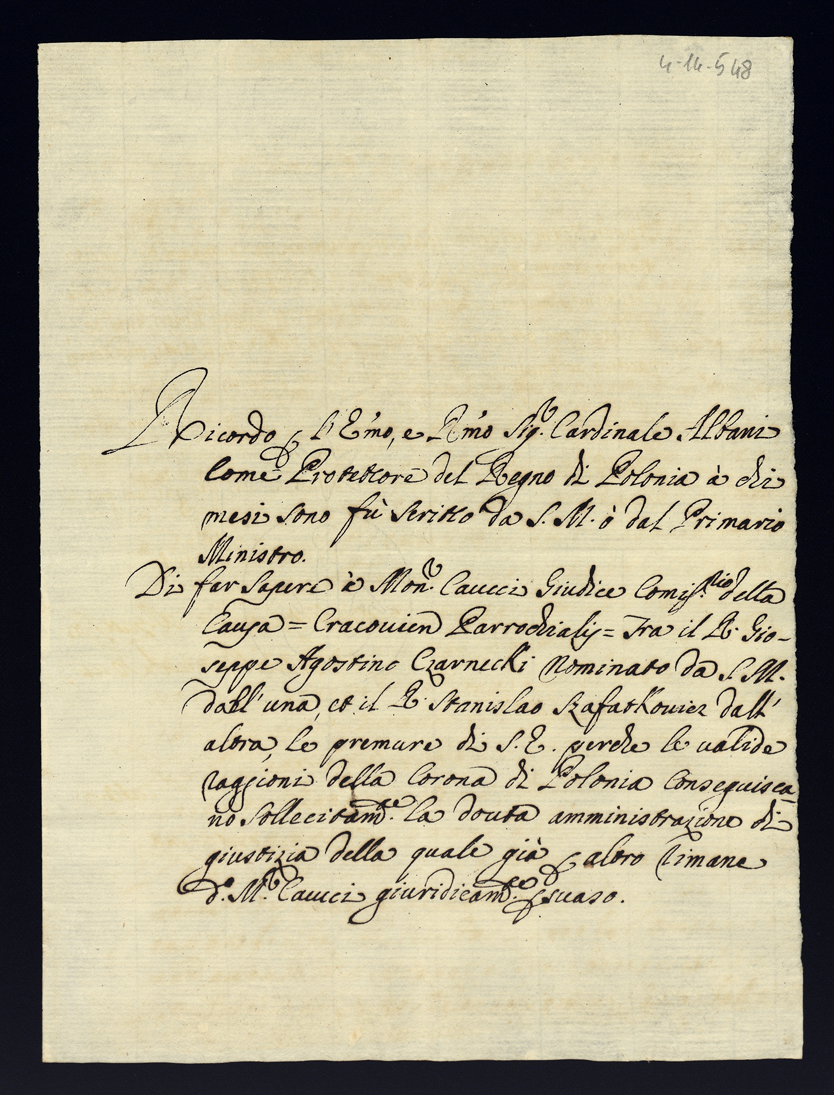 4-14-548
Ricordo p l'Em̃o, e Rm̃o Sig.r Cardinale Albani
Come Protettore del Regno di Polonia à chi
mesi sono fù scritto da S. M. ò dal Primario
Ministro.
Di far sapere à Mon.r Caucci Giudice Comis.rio della
Causa = Cracovien Parrochialis = Fra il R. Gio-
seppe Agostino Czarnecki Nominato da S. M.
dall' una, et il R. Stanislao Szafatkouicz dall'
altra, le premure di S. E. perche le valide
raggioni della Corona di Polonia Conseguisca-
no sollecitam.te la douta amministrazione di
giustizia della quale già p altro rimane
d.o M.r Caucci giuridicam.te psuaso.